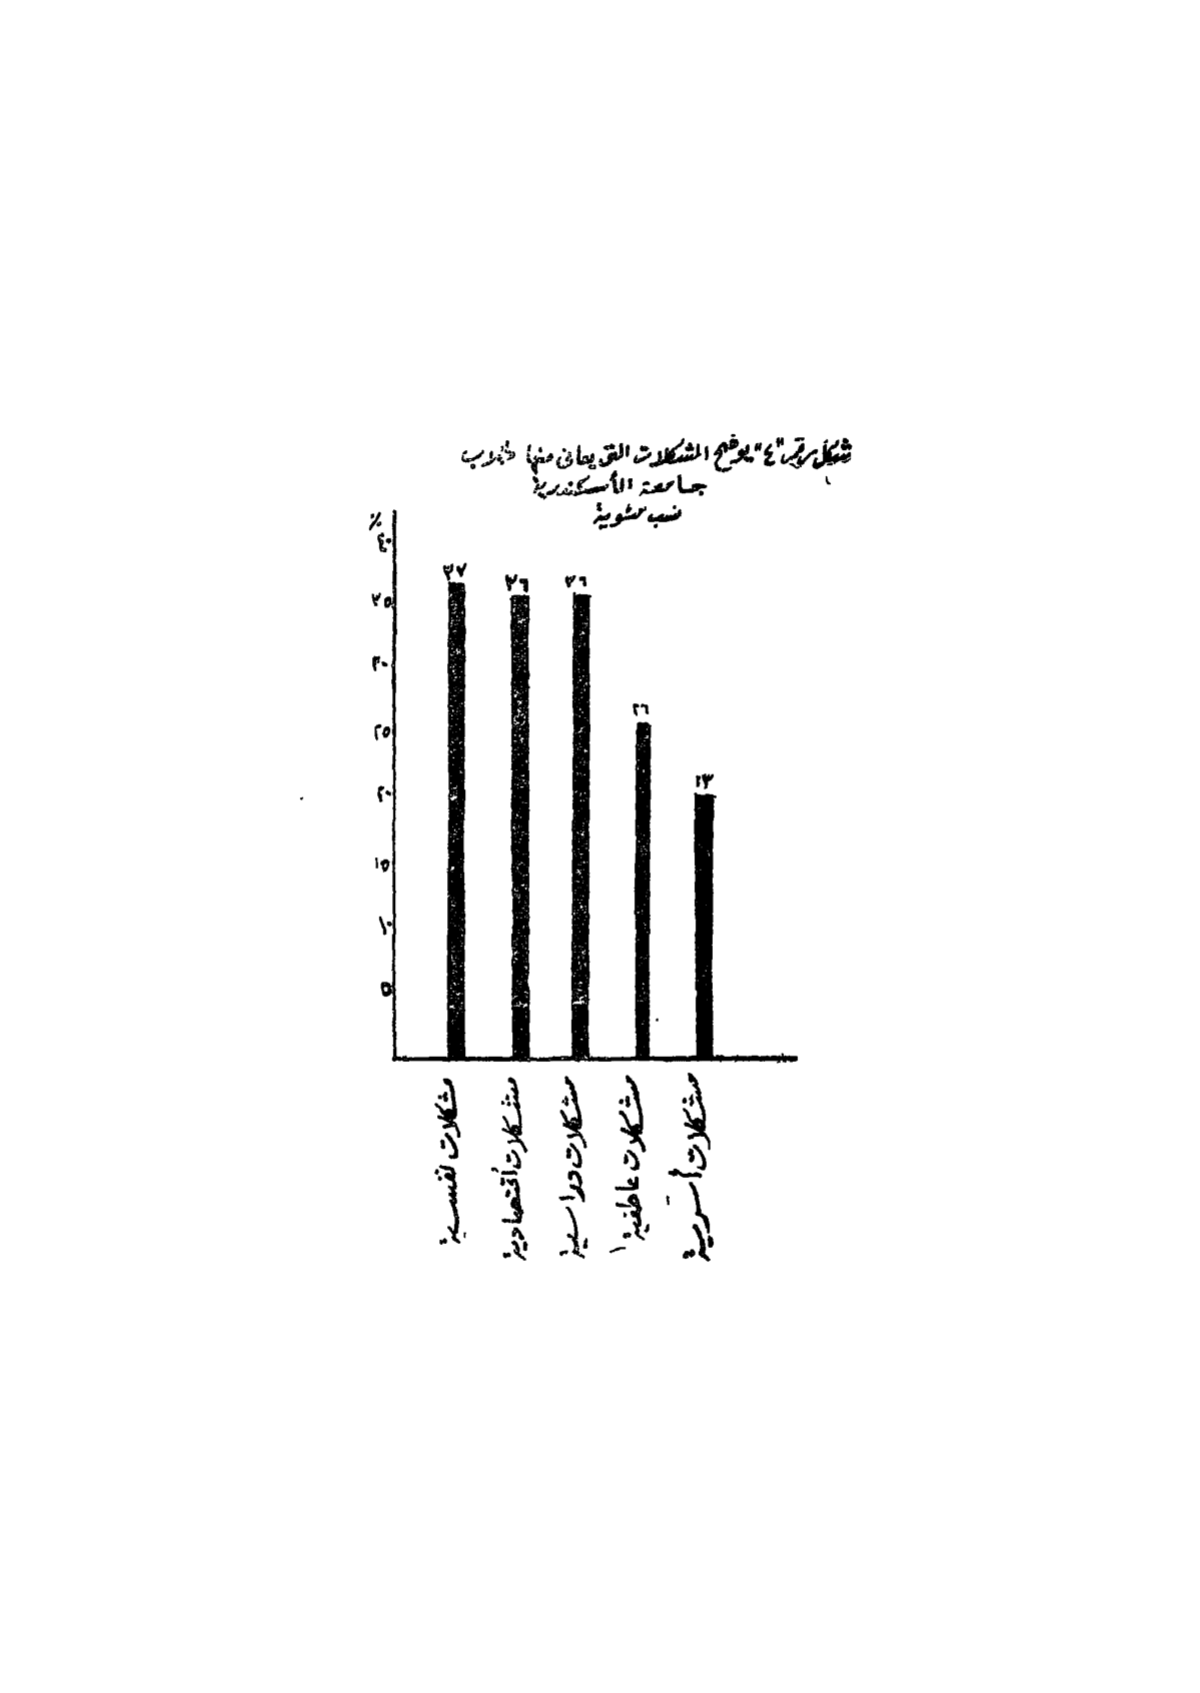 شكل رقم "٤" يوضح المشكلات التى يعانى منها طلاب
جامعة الأسكندرية
نسب مئوية
٪
٤٠
٣٥
٣٠
٢٥
٢٠
١٥
١٠
٥
٣٧
٣٦
٣٦
٢٦
١٣
مشكلات نفسية
مشكلات أقتصادية
مشكلات دراسية
مشكلات عاطفية
مشكلات أسرية